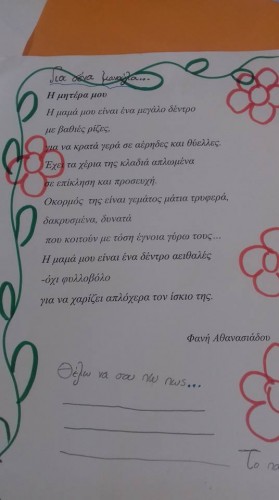 Για σένα μανούλα...
Η μητέρα μου
Η μαμά μου είναι ένα μεγάλο δέντρο
με βαθιές ρίζες,
για να κρατά γερά σε αέρηδες και θύελλες.
Έχει τα χέρια της κλαδιά απλωμένα
σε επίκληση και προσευχή.
Οκορμός της είναι γεμάτος μάτια τρυφερά,
δακρυσμένα, δυνατά
που κοιτούν με τόση έγνοια γύρω τους…
Η μαμά μου είναι ένα δέντρο αειθαλές
-όχι φυλλοβόλο
για να χαρίζει απλόχερα τον ίσκιο της.
Φανή Αθανασιάδου
Θέλω να σου πω πως...
Το